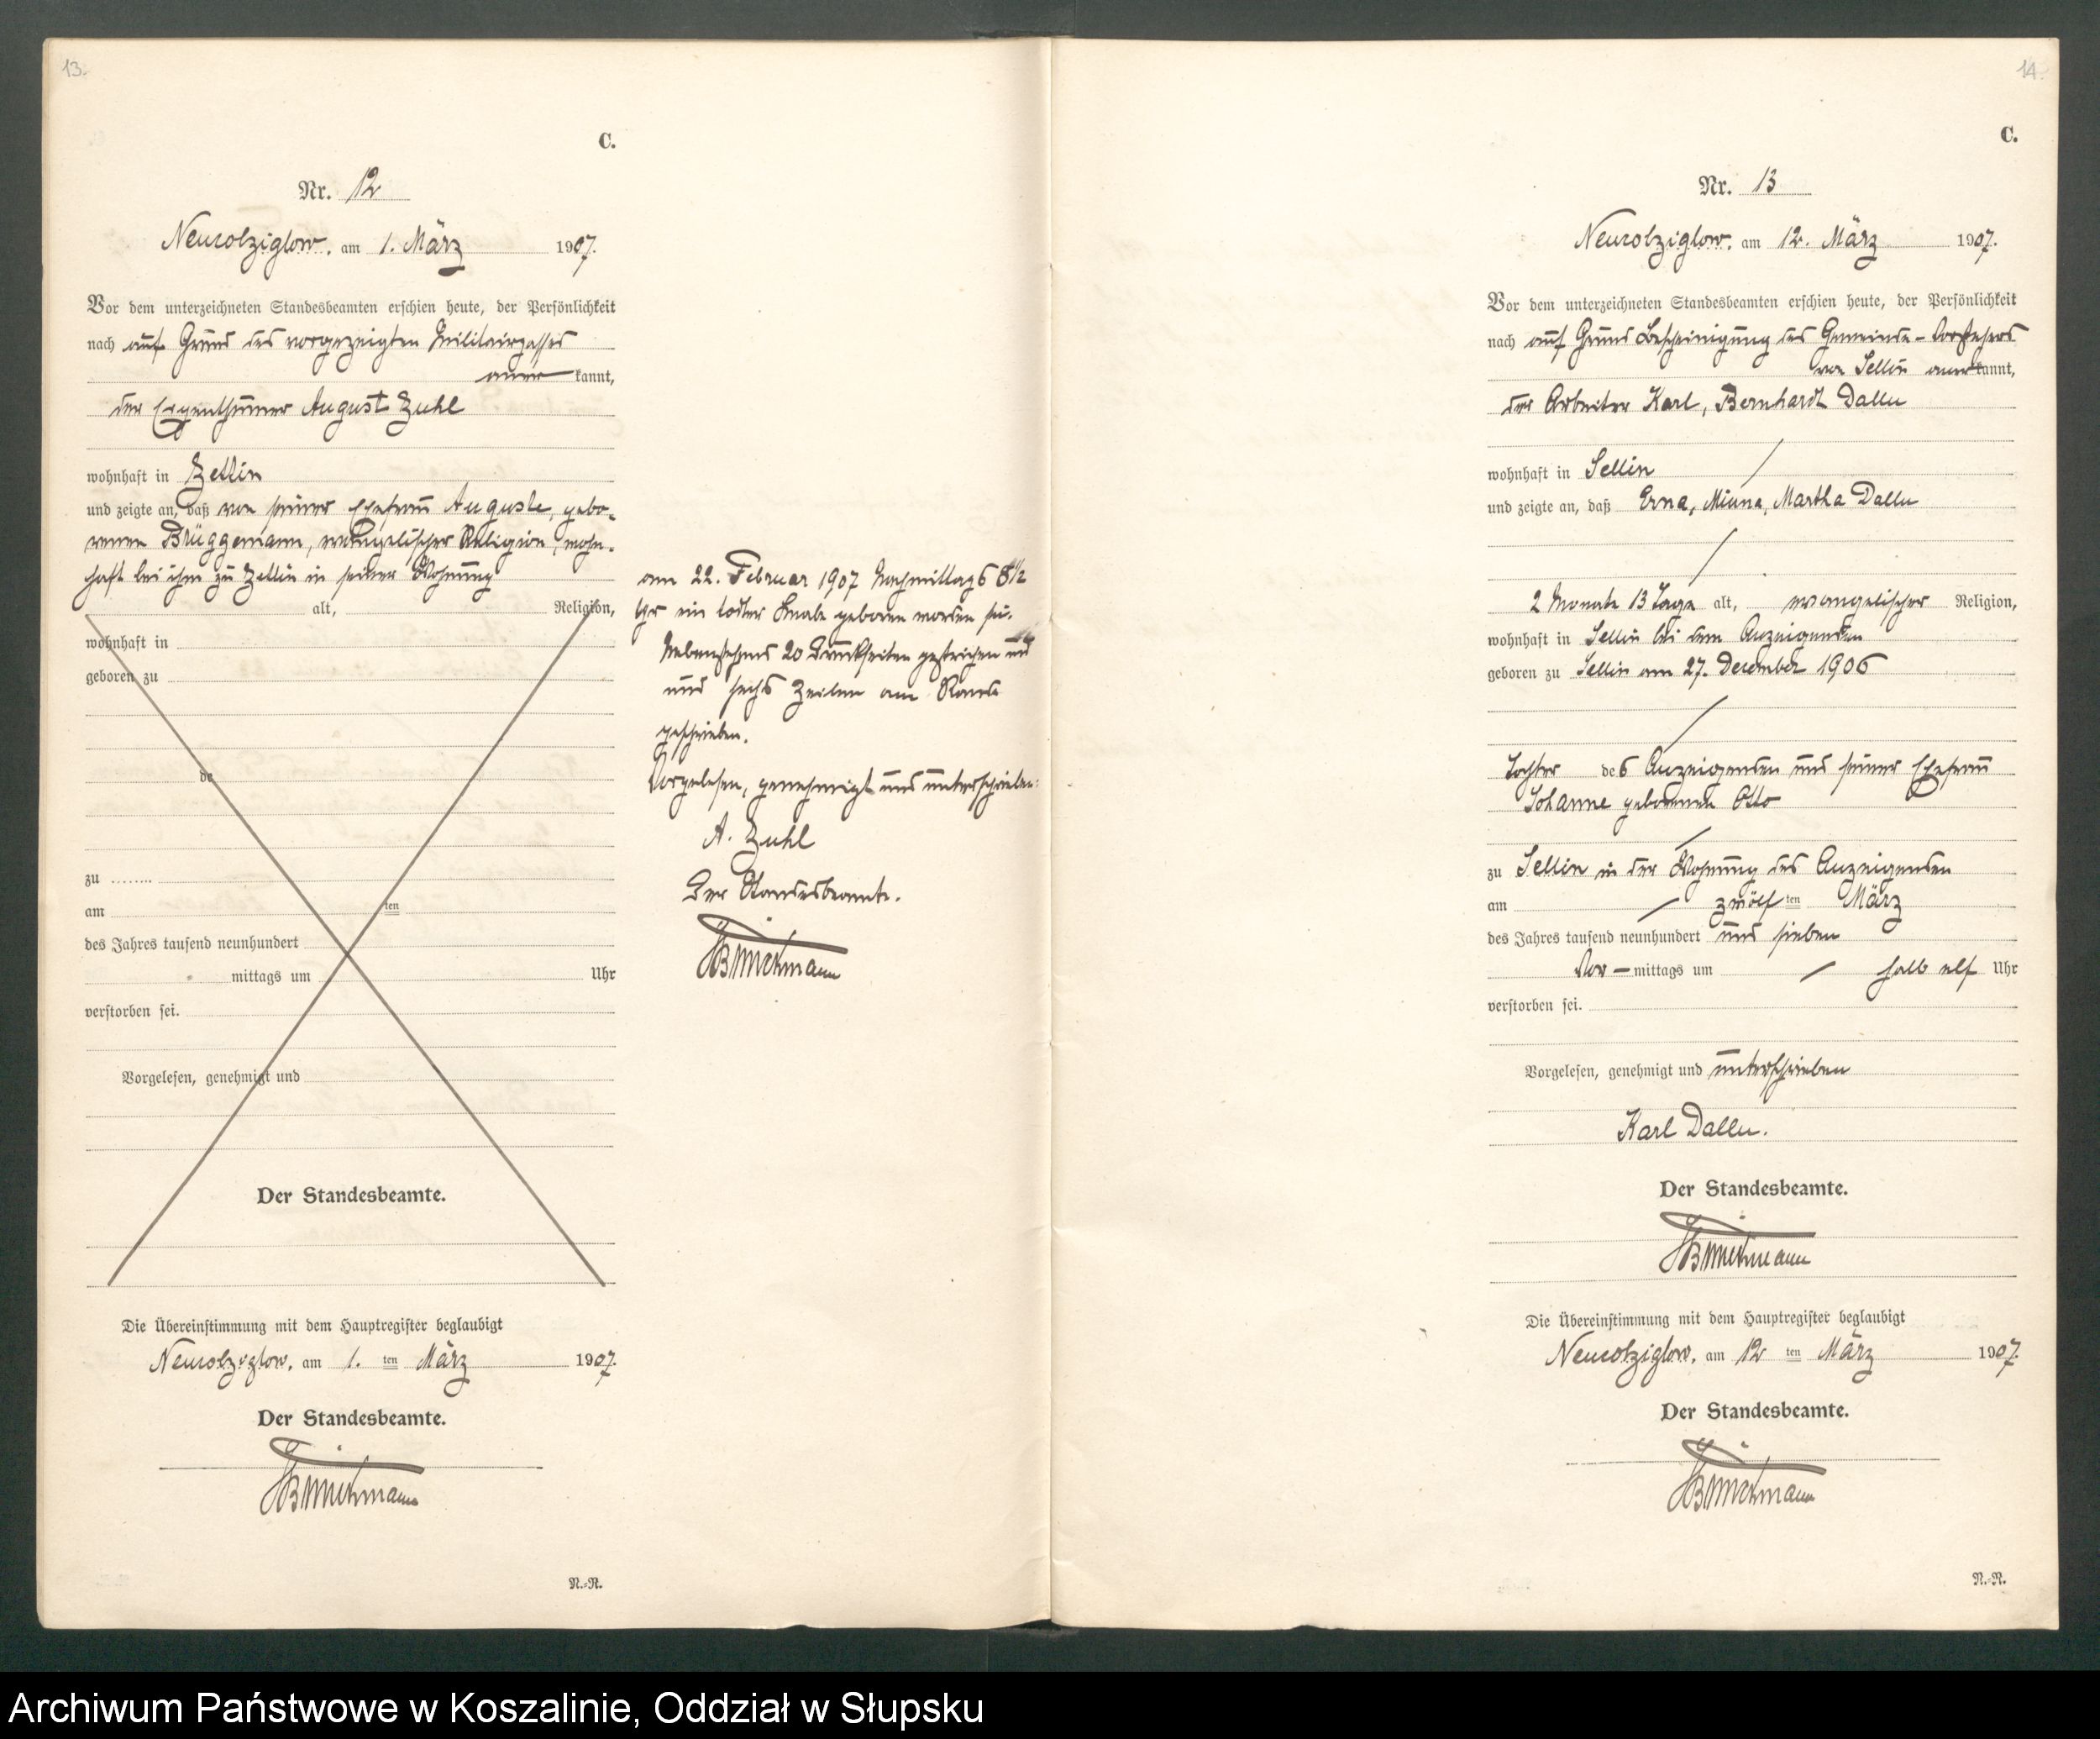 13.
C.
Nr. 12
Neukolziglow, am 1. März 1907.
Vor dem unterzeichneten Standesbeamten erschien heute, der Persönlichkeit
nach auf Grund des vorgezeigten Militairpasses
anerkannt,
der Eigenthümer August Zuhl
wohnhaft in Zettin
und zeigte an, daß von seiner Ehefrau Auguste, gebo-
renen Brüggemann, evangelischer Religion, wohn-
haft bei ihm zu Zettin in seiner Wohnung
alt, Religion,
wohnhaft in
geboren zu
de
zu ........
am ten
des Jahres tausend neunhundert
mittags um Uhr
verstorben sei.
Vorgelesen, genehmigt und
Der Standesbeamte.
Die Übereinstimmung mit dem Hauptregister beglaubigt
Neukolziglow, am 1. ten März 1907.
Der Standesbeamte.
N.-R.
am 22. Februar 1907 Nachmittags 8 1/2
Uhr ein todter Knabe geboren worden sei.
Nebenstehend 20 Druckzeilen gestrichen und
und sechs Zeilen am Rande
geschrieben.
Vorgelesen, genehmigt und unterschrieben:
A. Zuhl
Der Standesbeamte.
14.
C.
Nr. 13
Neukolziglow, am 12. März 1907.
Vor dem unterzeichneten Standesbeamten erschien heute, der Persönlichkeit
nach auf Grund Bescheinigung des Gemeinde-Vorstehers
von Sellin anerkannt,
der Arbeiter Karl, Bernhardt
wohnhaft in Sellin
und zeigte an, daß Erna, Minna, Martha
2 Monate 13 Tage alt, evangelischer Religion,
wohnhaft in Sellin bei dem Anzeigenden
geboren zu Sellin am 27. December 1906
Tochter des Anzeigenden und seiner Ehefrau
Johanne geborenen Otto
zu Sellin in der Wohnung des Anzeigenden
am zwölften März
des Jahres tausend neunhundert und sieben
Vor-mittags um halb elf Uhr
verstorben sei.
Vorgelesen, genehmigt und unterschrieben
Karl
Der Standesbeamte.
Die Übereinstimmung mit dem Hauptregister beglaubigt
Neukolziglow, am 12 ten März 1907.
Der Standesbeamte.
N.-R.
Archiwum Państwowe w Koszalinie, Oddział w Słupsku